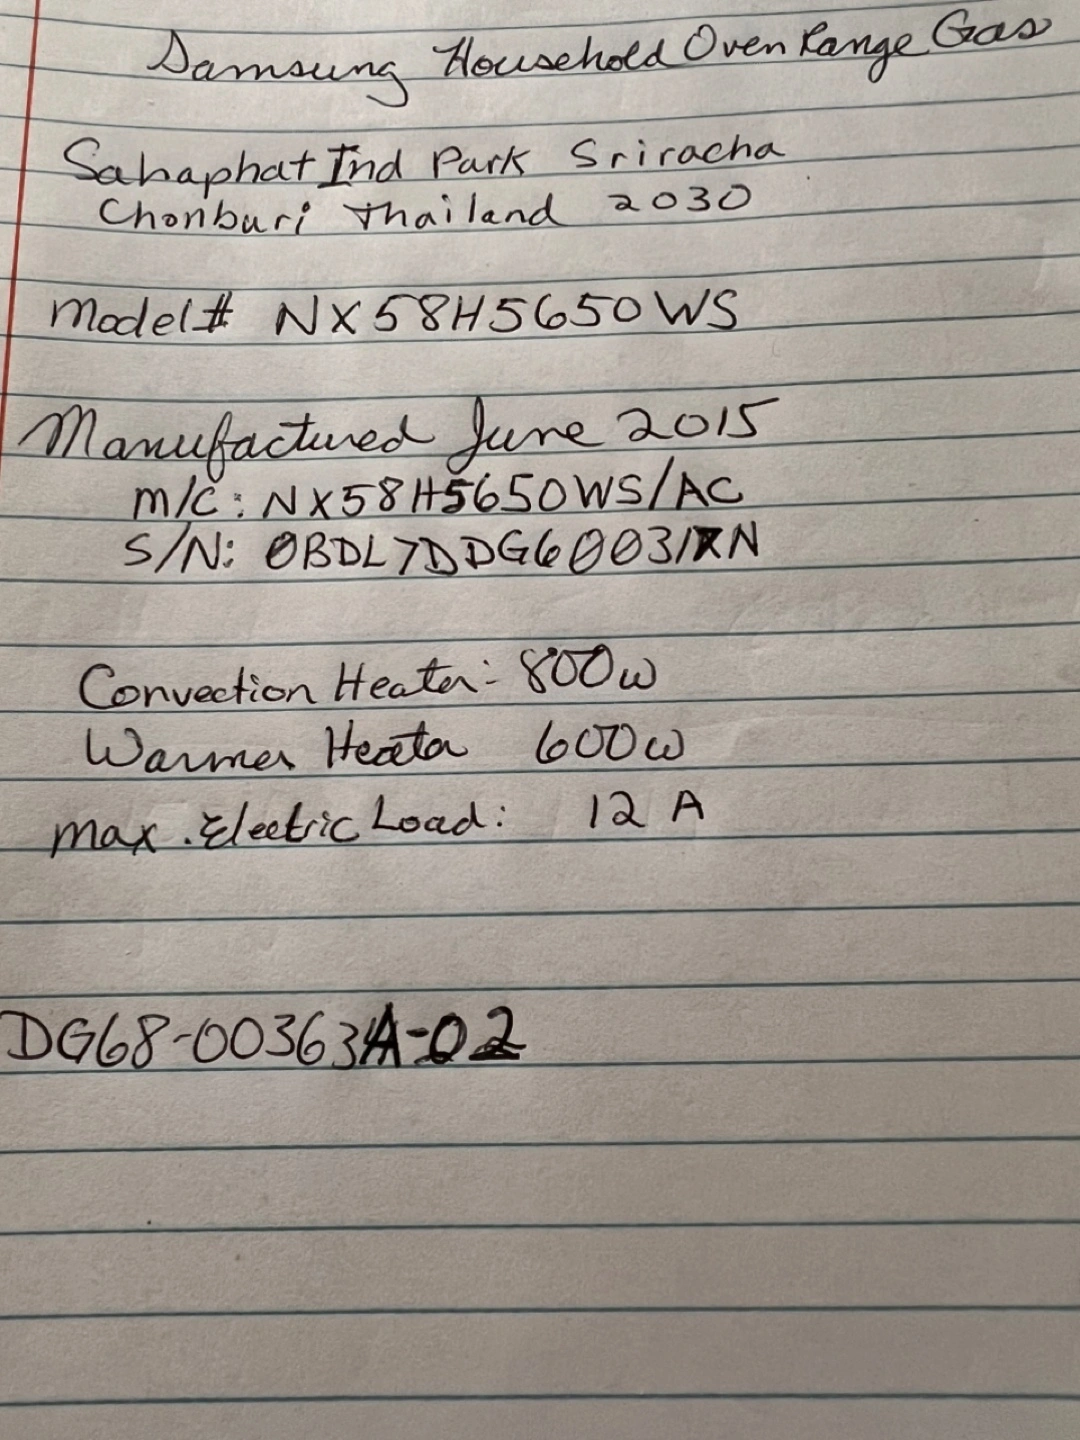 Samsung Household Oven Range Gas
Sahaphat Ind Park Sriracha
Chonburi Thailand 2030
Model# NX58H5650WS
Manufactured June 2015
M/C: NX58H5650WS/AC
S/N: 0BDL7DDG60031XN
Convection Heater: 800w
Warmer Heater 600w
Max. Electric Load: 12 A
DG68-00363A-02